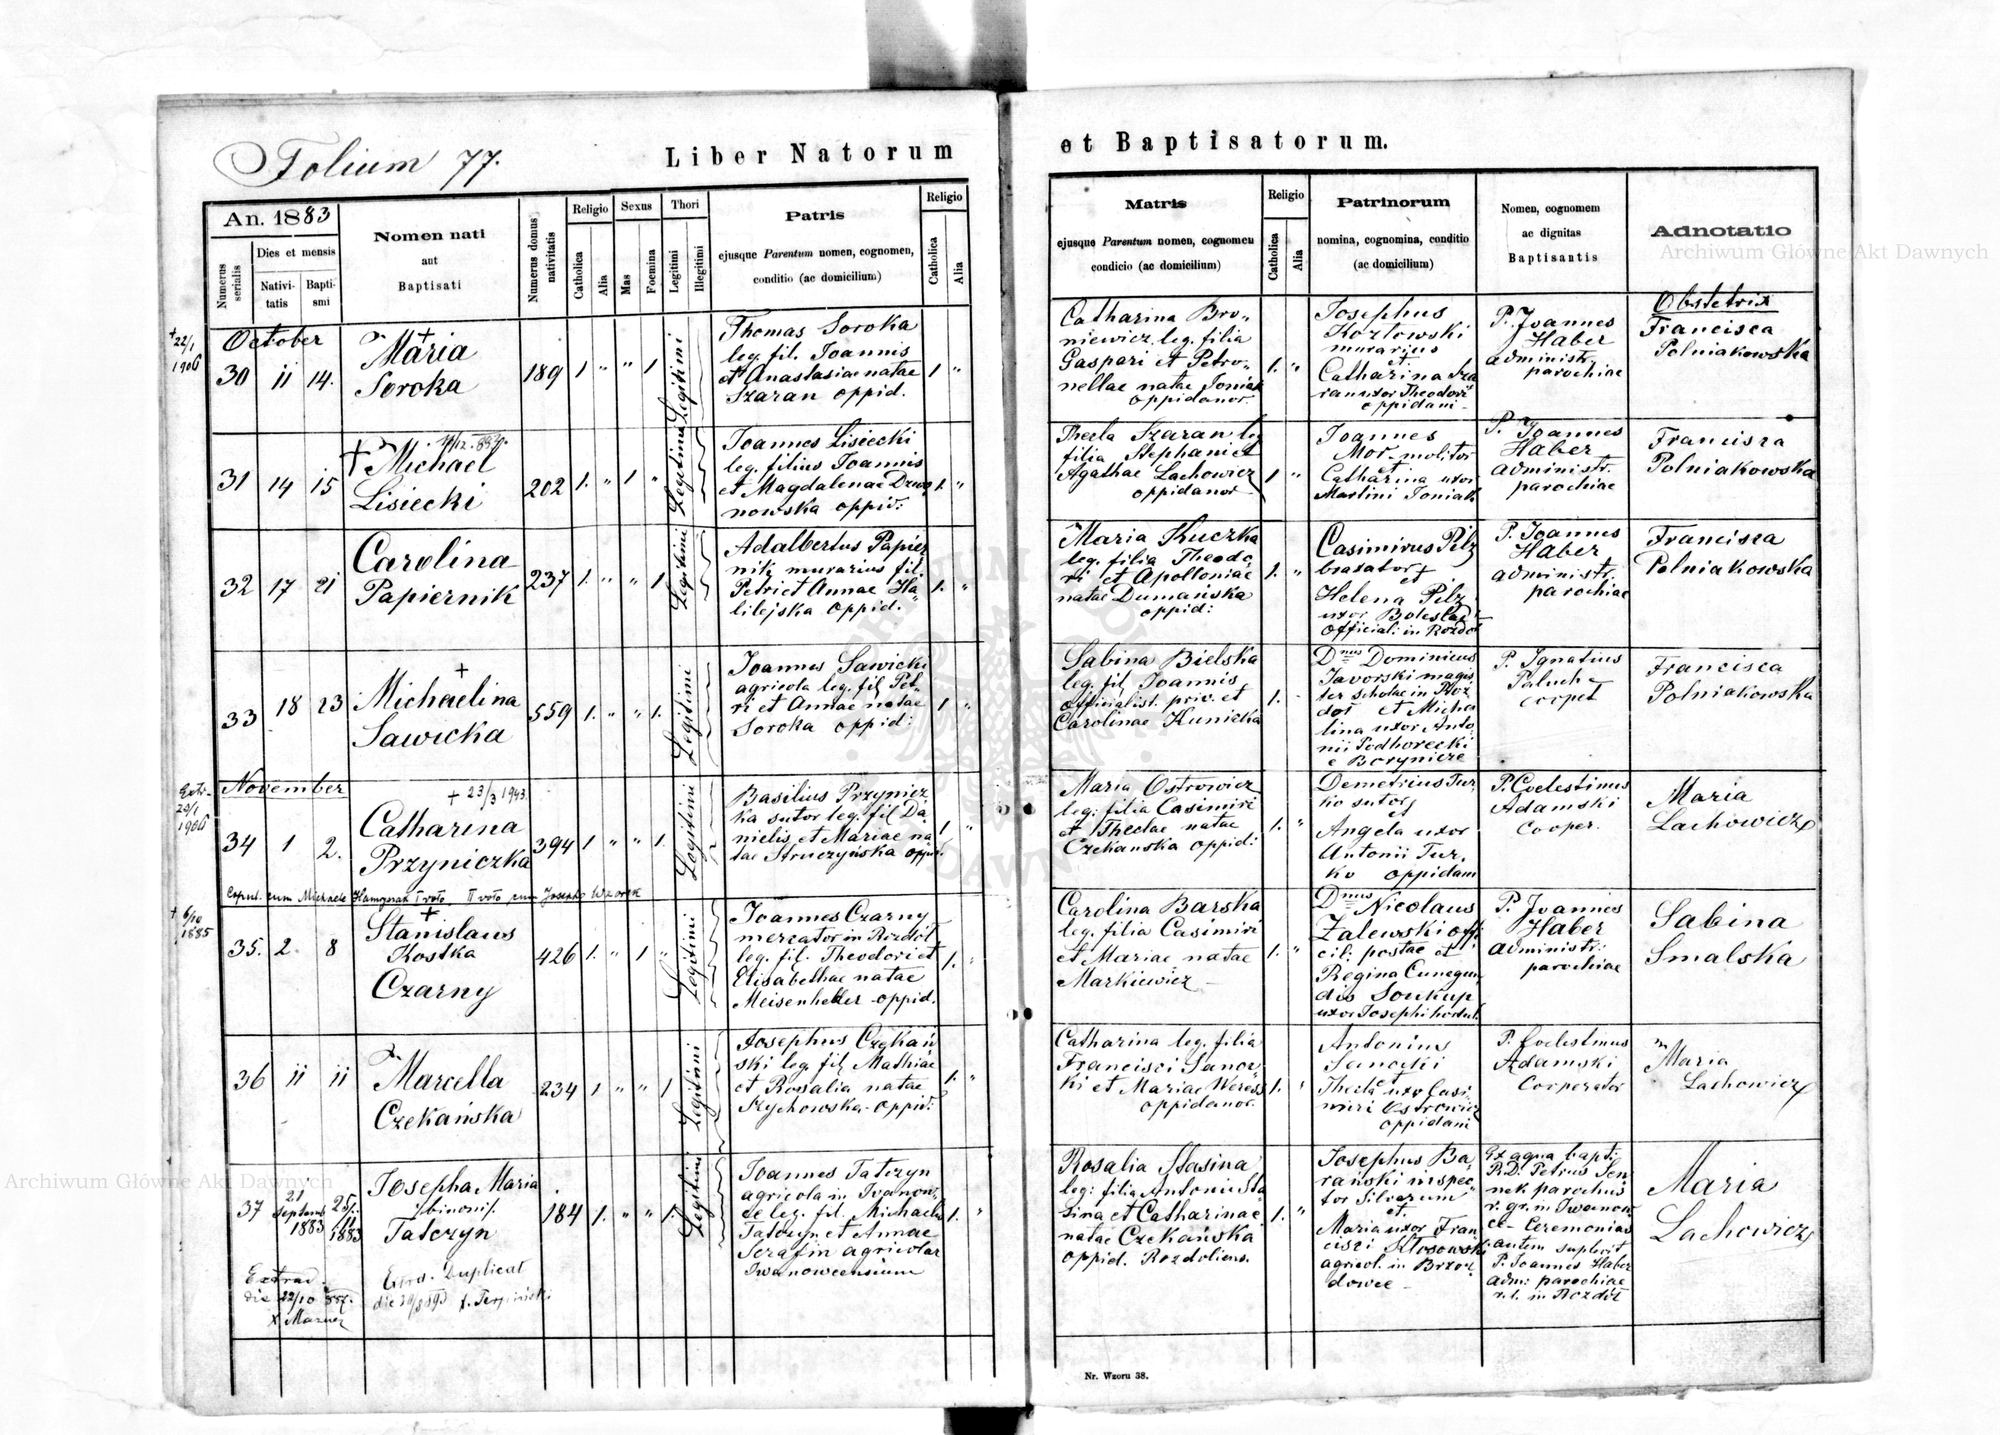 Folium 77.
Liber Natorum et Baptisatorum.
An. 1883
Dies et mensis
Numerus serialis
Nativitatis
Baptismi
Nomen nati
aut
Baptisati
Numerus domus nativitatis
Religio
Catholica
Alia
Sexus
Mas
Foemina
Thori
Legitimi
Illegitimi
Patris
ejusque Parentum nomen, cognomen,
conditio (ac domicilium)
Religio
Catholica
Alia
Matris
ejusque Parentum nomen, cognomen
condicio (ac domicilium)
Religio
Catholica
Alia
Patrinorum
nomina, cognomina, conditio
(ac domicilium)
Nomen, cognomem
ac dignitas
Baptisantis
Adnotatio
Archiwum Główne Akt Dawnych
† 22/1
1906
October
30 11 14.
Maria
Soroka
189 1 " " 1
Legitimi
Thomas Soroka
leg. fil. Joannis
et Anastasiae natae
Szaran oppid.
1 "
Catharina Bro-
niewicz leg. filia
Gaspari et Petro-
nellae natae Toniak
oppidanor.
1. "
Josephus
Kozłowski
murarius
et
Catharina Sza
ran uxor Theodori
oppidani
P. Joannes
Haber
administr.
parochiae
Obstetrix
Francisca
Polniakowska
31 14 15
† Michael
Lisiecki
202 1. " 1 "
Legitimi
Joannes Lisiecki
leg. filius Joannis
et Magdalenae
nowska oppid:
1. "
Thecla Szaran leg
filia Stephani et
Agathae Lachowicz
oppidanor
1 "
Joannes
Mor molitor
et
Catharina uxor
Martini Toniak
P. Joannes
Haber
administr.
parochiae
Francisca
Polniakowska
32 17 21
Carolina
Papiernik
237 1. " " 1.
Legitimi
Adalbertus Papier
nik murarius fil.
Petri et Annae Ha
lilejska oppid.
1. "
Maria Kuczka
leg. filia Theodo-
ri et Apolloniae
natae Dumańska
oppid:
1. "
Casimirus Pilz
braxator
et
Helena Pilz
uxor Boleslai
official: in Rozdoł
P. Joannes
Haber
administr.
parochiae
Francisca
Polniakowska
33 18 23
†
Michaelina
Sawicka
559 1. " " 1.
Legitimi
Joannes Sawicki
agricola leg. fil Pet-
ri et Annae natae
Soroka oppid:
1 "
Sabina Bielska
leg. fil Joannis
officialist. priv. et
Carolinae Kunicka
1.
Dnus Dominicus
Javorski magis
ter scholae in Roz
doł et Micha
lina uxor Anto-
nii Podhorecki
e Borynicze
P. Ignatius
Paluch
coopet
Francisca
Polniakowska
Extr.
22/1
1906
November
34 1 2.
† 23/3 1943.
Catharina
Przyniczka
394 1 " " 1.
Legitimi
Basilius Przynicz
ka sutor leg. fil Da-
nielis et Mariae na
tae Struczyńska oppid.
1 "
Maria Ostrowicz
leg: filia Casimiri
et Theclae natae
Czekanska oppid:
1. "
Demetrius Tur
ko sutor
et
Angela uxor
Antonii Tur.
ko oppidam
P. Coelestinus
Adamski
Cooper.
Maria
Lachowicz
Copul. cum Michaele I voto, II voto cum Josepho
† 6/10
1885
35. 2. 8
†
Stanislaus
Kostka
Czarny
426 1. " 1 "
Legitimi
Joannes Czarny
mercator in Rozdół
leg. fil. Theodori et
Elisabethae natae
Meisenhelter oppid.
1. "
Carolina Barska
leg. filia Casimiri
et Mariae natae
Markiewicz
1. "
Dnus Nicolaus
Zalewski offi
cil: postae et
Regina Cunegun
dis Soukup
uxor Josephi hortul.
P. Joannes
Haber
administr:
parochiae
Sabina
Smalska
36 11 11
Marcella
Czekańska
234 1 " " 1
Legitimi
Josephus Czekań
ski leg. fil Mathiae
et Rosalia natae
Szychowska oppid:
1. "
Catharina leg. filia
Francisci Sanoc-
ki et Mariae Weress
oppidanor.
1. "
Antonius
Sanocki
et
Thecla uxor Casi-
miri Ostrowicz
oppidani
P. Coelestinus
Adamski
Cooperator
Maria
Lachowicz
37 21 Septemb 1883
25/11 1883
Josepha Maria
/binomi/
Tatczyn
184 1. " " 1.
Legitimi
Joannes Tatczyn
agricola in Iwanow-
ce leg. fil. Michaelis
Tatczyn et Annae
Serafin agricolar
Iwanowcensium
1. "
Rosalia Stasina
leg: filia Antonii Sta
sina et Catharinae
natae Czekańska
oppid. Rozdoliens.
1. "
Josephus Ba-
rański inspec-
tor Silvarum
et.
Maria uxor Fran
cisci Kłosowski
agricol. in Brzoz
dowce
Ex aqua bapt:
R.D. Petrus Sen
nek parochus
r. gr. in Iwanow
ce Ceremonias
autem suplevit
P. Joannes Haber
adm: parochiae
r.l. in Rozdół
Maria
Lachowicz
Extrad.
die 22/10 887.
Extrd. Duplicat
Nr. Wzoru 38.
Archiwum Główne Akt Dawnych